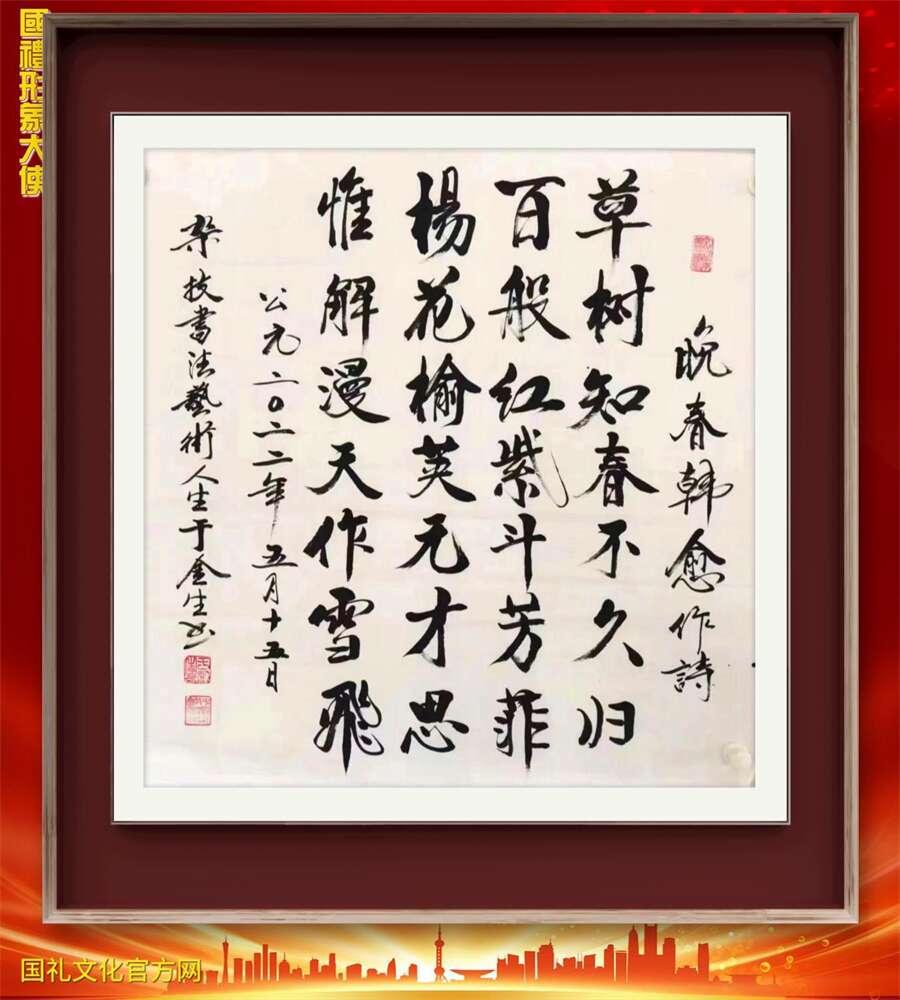 國禮形象大使
晚春韩愈作詩
草树知春不久归
百般红紫斗芳菲
楊花榆荚无才思
惟解漫天作雪飛
公元二0二二年五月十五日
杂技書法藝術人生于金生书
国礼文化官方网